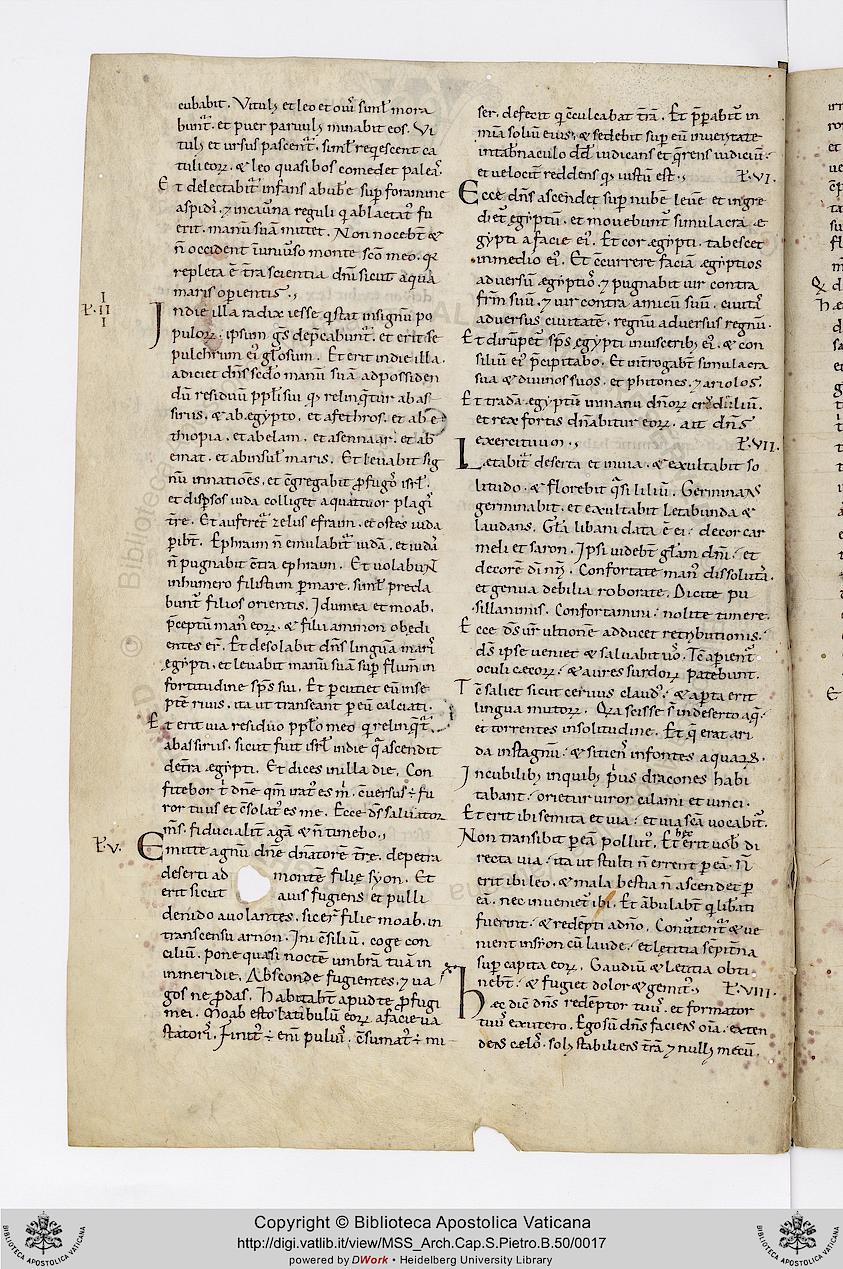 cubabit. Vitul; et leo et oui᷑ simł mora
bunt᷑. et puer paruul; minabit eos. Vi
tul; et ursus pascent᷑. simł reqescent ca
tuli eoꝝ. & leo quasi bos comedet palea᷑.
Et delectabit᷑ infans ab ubere sup foramine
aspidi᷑. ⁊ in cauna reguli q ablactat᷑ fu
erit. manū suā mittet. Non nocebt̄ &
n̄ occident ī uniu᷑so monte sc̄o meo. qa
repleta ē tr̄a scientia dn̄i sicut aqua
maris operientis.
I
Ł. II
I
In die illa radix iesse q stat in signū po
puloꝝ. ipsum gs dep̄cabunt᷑. et erit se
pulchrum ei᷑ głosum. Et erit in die illa.
adiciet dn̄s scdo manū suā ad possiden
dū residuū ppłi sui qd relinqt᷑ur ab as
siriis. & ab ęgypto. et a fethros. et ab e
thiopia. et ab elam. et a sennaar. et ab
emat. et ab insuł maris. Et leuabit sig
nū in natiōes. et c̄gregabit p̄fugo᷑ isrł.
et disp̄sos iuda colliget a quattuor plagi᷑
tr̄e. Et auferet᷑ zelus efraim. et ostes iuda
p̄ibt̄. Ephraim n̄ emulabit᷑ iudā. et iuda᷑
n̄ pugnabit c̄tra ephraim. Et uolabunt
in humero filistim per mare. simł preda
bunt᷑ filios orientis. Idumea et moab.
p̄ceptū man᷑ eoꝝ. & filii ammon obedi
entes er᷑. Et desolabit dn̄s linguā mari᷑
ęgypti. et leuabit manū suā sup flum̄ in
fortitudine sp̄s sui. Et p̄cutiet eū in se
ptē riuis. ita ut transeant p eū calciati.
Et erit uia residuo ppło meo q relinqt᷑
ab assiriis. sicut fuit isrł in die qa ascendit
de tr̄a ęgypti. Et dices in illa die. Con
fitebor t dn̄e qm̄ irat᷑ es m. c̄uersus ÷ fu
ror tuus et c̄solat᷑ es me. Ecce ds̄ saluator
m̄s. fiducialit᷑ agā & n̄ timebo.
Ł. V.
Emitte agnū dn̄e dn̄atorē tr̄e. de petra
deserti ad montē filie syon. Et
erit sicut auis fugiens et pulli
de nido auolantes. sic er᷑ filie moab. in
transcensu arnon. Ini c̄siliū. coge con
ciliū. pone quasi noctē umbrā tuā in
in meridie. Absconde fugientes. ⁊ ua
gos ne p̄das. Habitabt̄ apud te p̄fugi
mei. Moab esto latibulū eoꝝ a facie ua
statori᷑. Finit᷑ ÷ eni pului᷑. c̄sumat᷑ ÷ mi
ser. defecit q c̄culcabat tr̄ā. Et p̄parabit᷑ in
mīa soliū eius. & sedebit sup eū in ueritate
in tab̄naculo dd̄ iudicans et qrens iudiciū
et uelocit᷑ reddens qd iustū est. Ł. VI.
Ecce dn̄s ascendet sup nubē leuē et ingre
diet᷑ ęgyptū. et mouebunt᷑ simulacra e
gypti a facie ei᷑. Et cor ægypti tabescet
in medio ei᷑. Et c̄currere faciā ægyptios
aduersū ægyptio᷑. ⁊ pugnabit uir contra
fr̄m suū. ⁊ uir contra amicū suū. ciuita᷑
aduersus ciuitatē. regnū aduersus regnū.
Et dirūpet᷑ sp̄s ęgypti in uiscerib; ei᷑. & con
siliū ei᷑ p̄cipitabo. Et int᷑rogabt̄ simulacra
sua & diuinos suos. et phitones. ⁊ ariolos.
Et tradā ægyptū in manu dn̄oꝝ crudeliū.
et rex fortis dn̄abitur eoꝝ. ait dn̄s
exercituum. Ł. VII.
Lætabit᷑ deserta et inuia. & exultabit so
litudo. & florebit qsi liliū. Germinans
germinabit. et exultabit letabunda &
laudans. Gła libani data ē ei. decor car
meli et saron. Ipsi uidebt̄ głam dn̄i. et
decorē di nr̄i. Confortate man᷑ dissoluta᷑.
et genua debilia roborate. Dicite pu
sillanimis. Confortamini. nolite timere.
Ecce ds̄ ur̄ ultionē adducet retributionis.
ds̄ ipse ueniet & saluabit uo᷑. Tc̄ apient᷑
oculi cæcoꝝ. & aures surdoꝝ patebunt.
Tc̄ saliet sicut ceruus claud᷑. & apta erit
lingua mutoꝝ. Qia scisse s̄ in deserto aq.
et torrentes in solitudine. Et q erat ari
da in stagnū. & sitien᷑ in fontes aquaꝝ.
In cubilib; in quib; p̄us dracones habi
tabant. orietur uiror calami et iunci.
Et erit ibi semita et uia. et uia scā uocabit᷑.
Non transibit p eā pollut᷑. Et hęc erit uob̄ di
recta uia. ita ut stulti n̄ errent p eā. N̄
erit ibi leo. & mala bestia n̄ ascendet p
eā. nec inueniet᷑ ibi. Et ābulabt̄ q lib̄ati
fuerint. & redēpti a dn̄o. Conu᷑tent᷑ & ue
nient in syon cū laude. et lętitia sēpit᷑na
sup capita eoꝝ. Gaudiū & lętitia obti
nebt̄. & fugiet dolor & gemit᷑. Ł. VIII.
Hæc dic̄ dn̄s redēptor tuu᷑. et formator
tuu᷑ ex utero. Ego sū dn̄s faciens oīa. exten
dens cælo᷑. sol; stabiliens tr̄ā ⁊ null; mecū.
Copyright © Biblioteca Apostolica Vaticana
http://digi.vatlib.it/view/MSS_Arch.Cap.S.Pietro.B.50/0017
powered by DWork • Heidelberg University Library